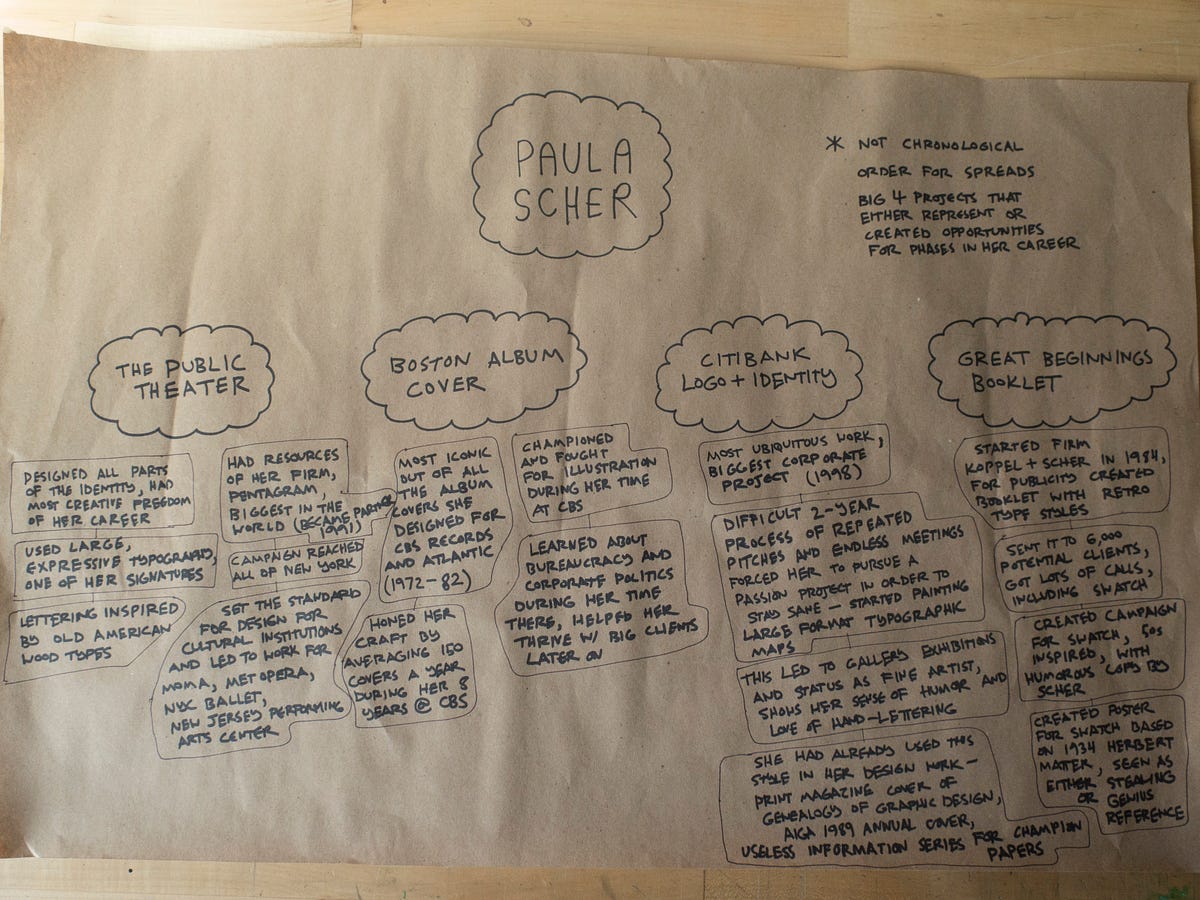 PAULA
SCHER
* NOT CHRONOLOGICAL
ORDER FOR SPREADS
BIG 4 PROJECTS THAT
EITHER REPRESENT OR
CREATED OPPORTUNITIES
FOR PHASES IN HER CAREER
THE PUBLIC
THEATER
DESIGNED ALL PARTS
OF THE IDENTITY, HAD
MOST CREATIVE FREEDOM
OF HER CAREER
USED LARGE,
EXPRESSIVE TYPOGRAPHY,
ONE OF HER SIGNATURES
LETTERING INSPIRED
BY OLD AMERICAN
WOOD TYPES
HAD RESOURCES
OF HER FIRM,
PENTAGRAM,
BIGGEST IN THE
WORLD (BECAME PARTNER
1991)
CAMPAIGN REACHED
ALL OF NEW YORK
SET THE STANDARD
FOR DESIGN FOR
CULTURAL INSTITUTIONS
AND LED TO WORK FOR
MOMA, MET OPERA,
NYC BALLET,
NEW JERSEY PERFORMING
ARTS CENTER
BOSTON ALBUM
COVER
MOST ICONIC
OUT OF ALL
THE ALBUM
COVERS SHE
DESIGNED FOR
CBS RECORDS
AND ATLANTIC
(1972-82)
HONED HER
CRAFT BY
AVERAGING 150
COVERS A YEAR
DURING HER 8
YEARS @ CBS
CHAMPIONED
AND FOUGHT
FOR ILLUSTRATION
DURING HER TIME
AT CBS
LEARNED ABOUT
BUREAUCRACY AND
CORPORATE POLITICS
DURING HER TIME
THERE, HELPED HER
THRIVE W/ BIG CLIENTS
LATER ON
CITIBANK
LOGO + IDENTITY
MOST UBIQUITOUS WORK,
BIGGEST CORPORATE
PROJECT (1998)
DIFFICULT 2-YEAR
PROCESS OF REPEATED
PITCHES AND ENDLESS MEETINGS
FORCED HER TO PURSUE A
PASSION PROJECT IN ORDER TO
STAY SANE — STARTED PAINTING
LARGE FORMAT TYPOGRAPHIC
MAPS
THIS LED TO GALLERY EXHIBITIONS
AND STATUS AS FINE ARTIST,
SHOWS HER SENSE OF HUMOR AND
LOVE OF HAND-LETTERING
SHE HAD ALREADY USED THIS
STYLE IN HER DESIGN WORK —
PRINT MAGAZINE COVER OF
GENEALOGY OF GRAPHIC DESIGN,
AIGA 1989 ANNUAL COVER,
USELESS INFORMATION SERIES FOR CHAMPION
PAPERS
GREAT BEGINNINGS
BOOKLET
STARTED FIRM
KOPPEL + SCHER IN 1984,
FOR PUBLICITY CREATED
BOOKLET WITH RETRO
TYPE STYLES
SENT IT TO 6,000
POTENTIAL CLIENTS,
GOT LOTS OF CALLS,
INCLUDING SWATCH
CREATED CAMPAIGN
FOR SWATCH, 50s
INSPIRED, WITH
HUMOROUS COPY BY
SCHER
CREATED POSTER
FOR SWATCH BASED
ON 1934 HERBERT
MATTER, SEEN AS
EITHER STEALING
OR GENIUS
REFERENCE